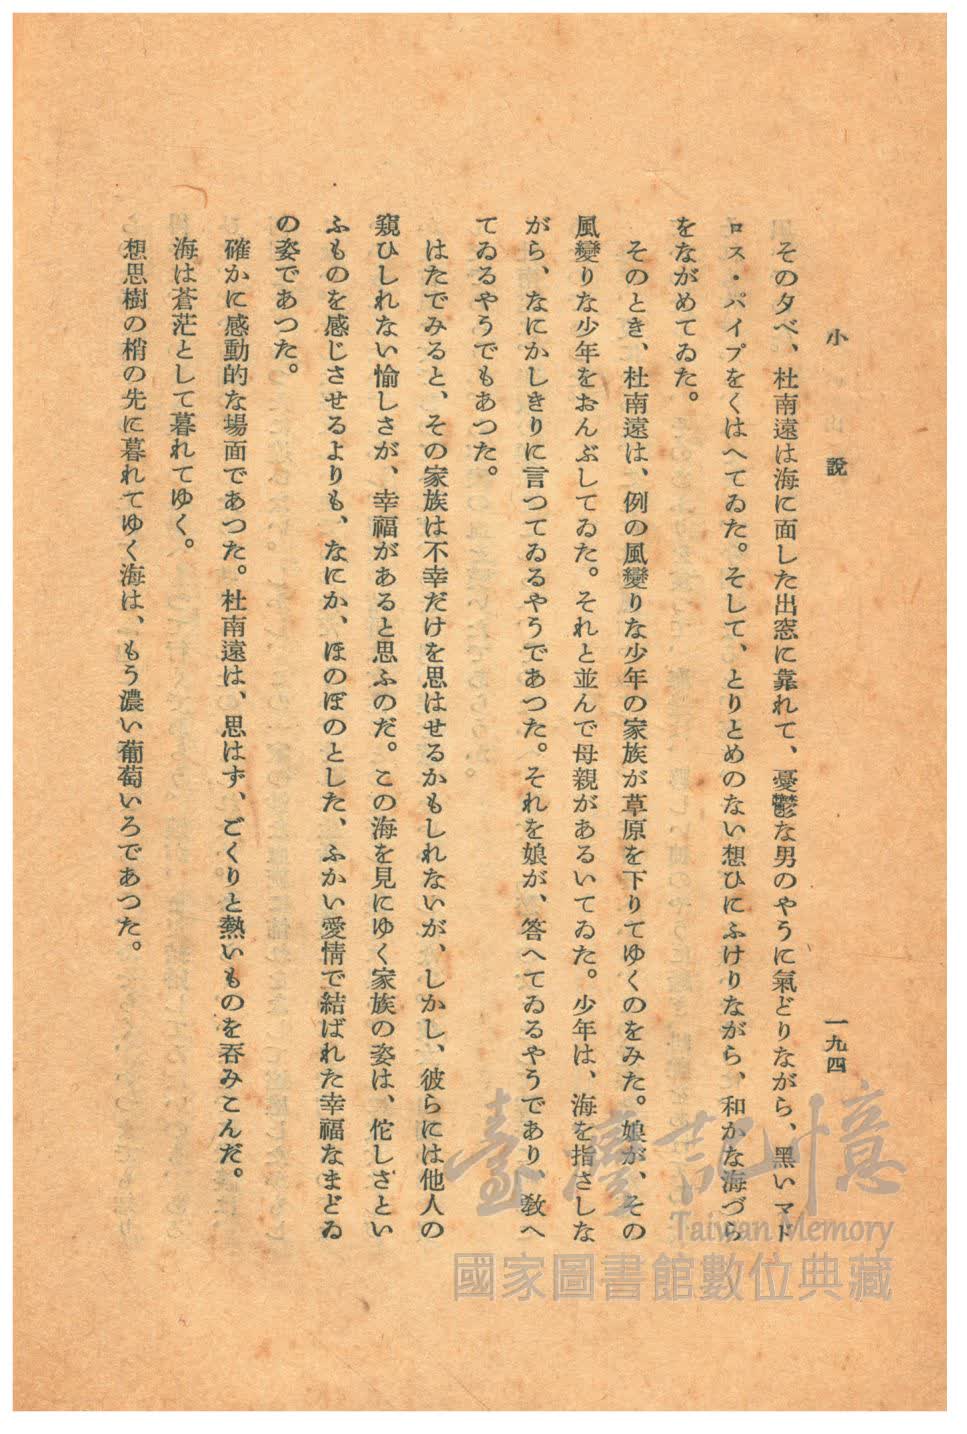 小說
一九四
その夕べ、杜南遠は海に面した出窓に靠れて、憂鬱な男のやうに氣どりながら、黑いマド
ロス・パイプをくはへてゐた。そして、とりとめのない想ひにふけりながら、和かな海づら
をながめてゐた。
そのとき、杜南遠は、例の風變りな少年の家族が草原を下りてゆくのをみた。娘が、その
風變りな少年をおんぶしてゐた。それと並んで母親があるいてゐた。少年は、海を指さしな
がら、なにかしきりに言つてゐるやうであつた。それを娘が、答へてゐるやうであり、敎へ
てゐるやうでもあつた。
はたでみると、その家族は不幸だけを思はせるかもしれないが、しかし、彼らには他人の
窺ひしれない愉しさが、幸福があると思ふのだ。この海を見にゆく家族の姿は、侘しさとい
ふものを感じさせるよりも、なにか、ほのぼのとした、ふかい愛情で結ばれた幸福なまどゐ
の姿であつた。
確かに感動的な場面であつた。杜南遠は、思はず、ごくりと熱いものを呑みこんだ。
海は蒼茫として暮れてゆく。
想思樹の梢の先に暮れてゆく海は、もう濃い葡萄いろであつた。
臺灣記憶
Taiwan Memory
國家圖書館數位典藏